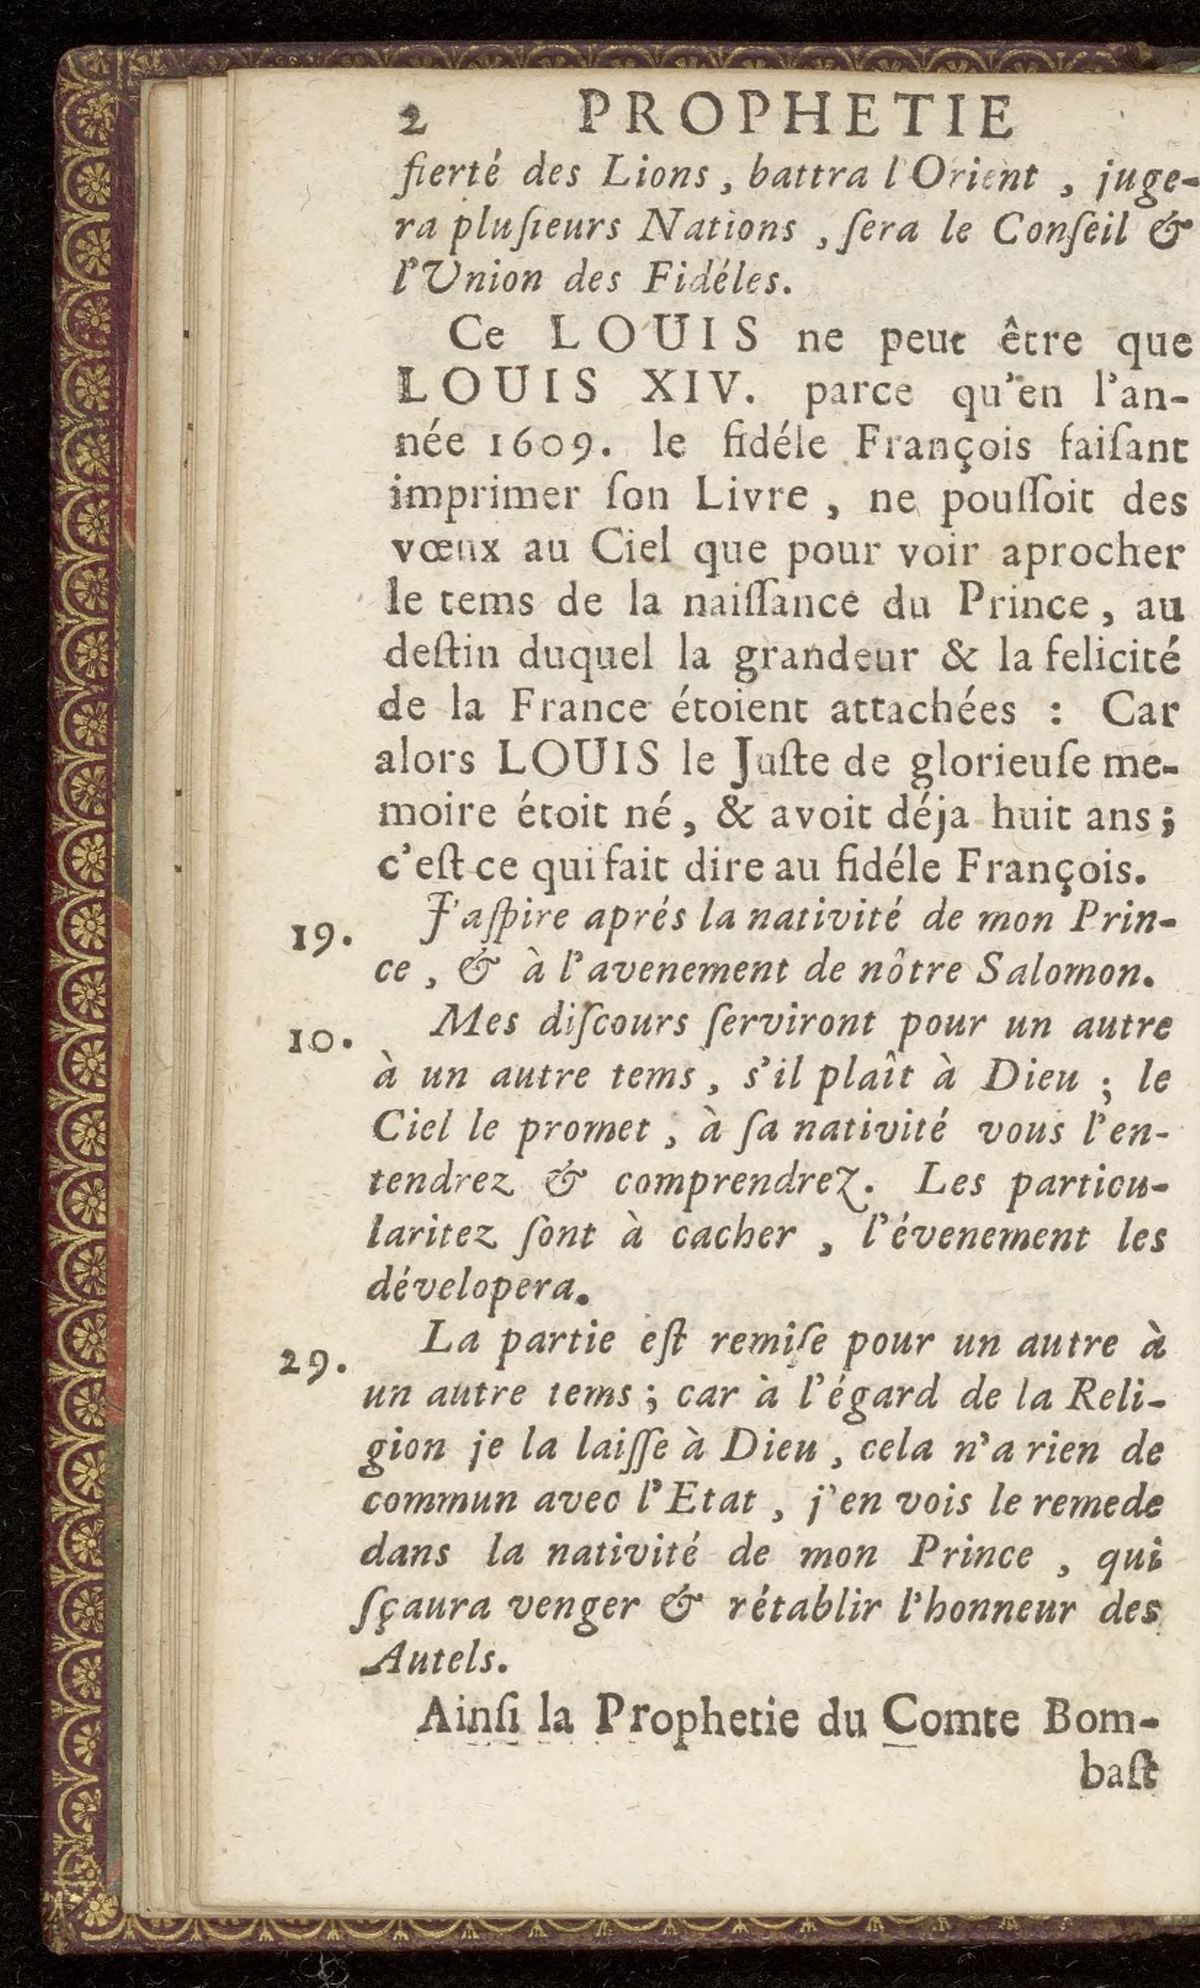 2 PROPHETIE
fierté des Lions, battra l'Orient, juge-
ra pluſieurs Nations, ſera le Conſeil &
l'Union des Fidéles.
Ce LOUIS ne peut être que
LOUIS XIV. parce qu'en l'an-
née 1609. le fidéle François faiſant
imprimer ſon Livre, ne pouſſoit des
vœux au Ciel que pour voir aprocher
le tems de la naiſſance du Prince, au
deſtin duquel la grandeur & la felicité
de la France étoient attachées : Car
alors LOUIS le Juſte de glorieuſe me-
moire étoit né, & avoit déja huit ans;
c'eſt ce qui fait dire au fidéle François.
19. J'aſpire aprés la nativité de mon Prin-
ce, & à l'avenement de nôtre Salomon.
10. Mes diſcours ſerviront pour un autre
à un autre tems, s'il plaît à Dieu ; le
Ciel le promet, à ſa nativité vous l'en-
tendrez & comprendrez. Les particu-
laritez ſont à cacher, l'évenement les
dévelopera.
29. La partie eſt remiſe pour un autre à
un autre tems ; car à l'égard de la Reli-
gion je la laiſſe à Dieu, cela n'a rien de
commun avec l'Etat, j'en vois le remede
dans la nativité de mon Prince, qui
ſçaura venger & rétablir l'honneur des
Autels.
Ainſi la Prophetie du Comte Bom-
baſt